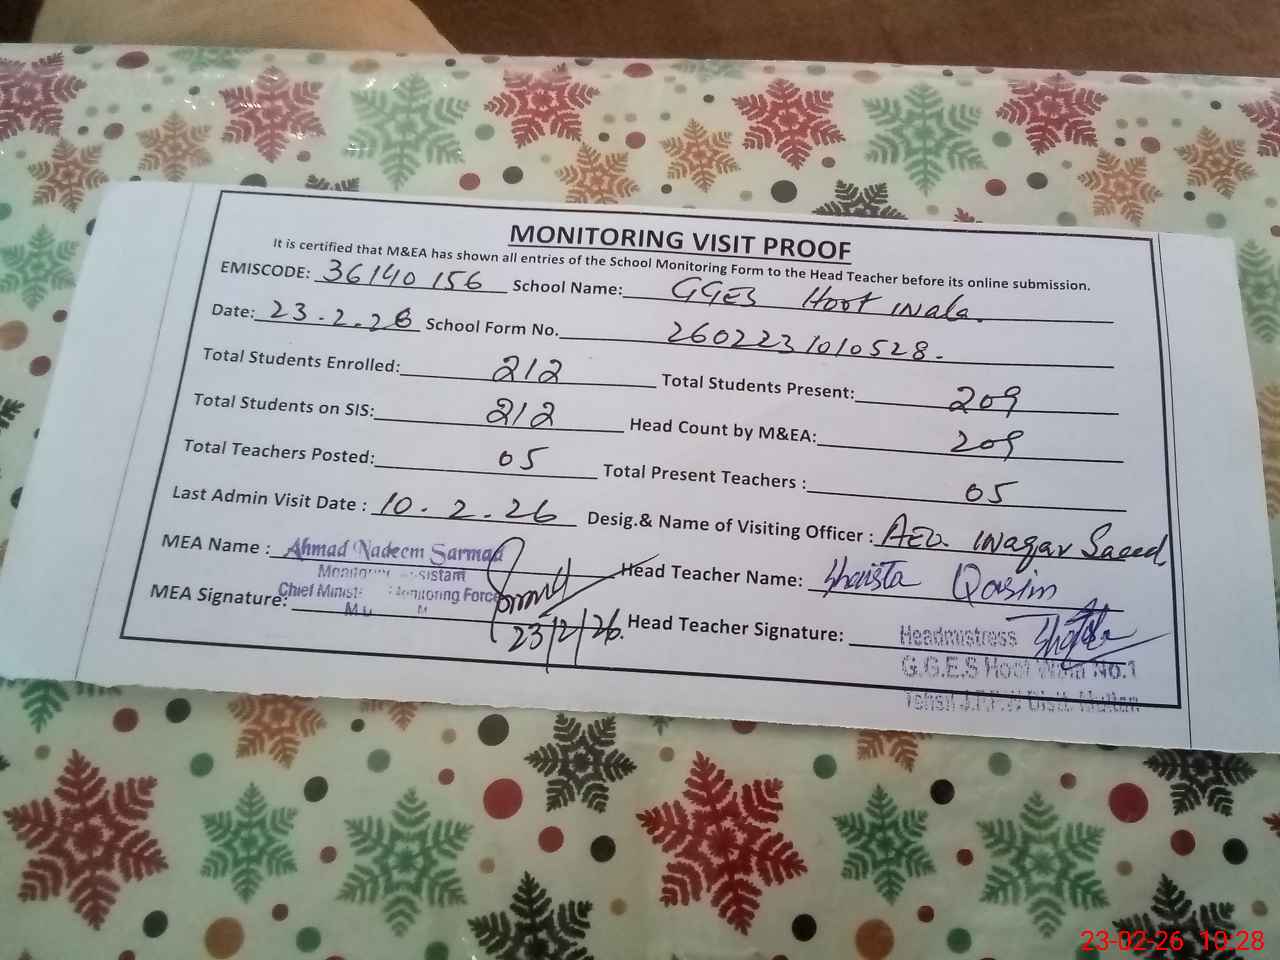 MONITORING VISIT PROOF
It is certified that M&EA has shown all entries of the School Monitoring Form to the Head Teacher before its online submission.
EMISCODE: 36140156 School Name: GGES Hoot Wala.
Date: 23.2.26 School Form No. 2602231010528.
Total Students Enrolled: 212 Total Students Present: 209
Total Students on SIS: 212 Head Count by M&EA: 209
Total Teachers Posted: 05 Total Present Teachers : 05
Last Admin Visit Date : 10.2.26 Desig.& Name of Visiting Officer : AEO. Waqar Saeed
MEA Name : Ahmad Nadeem Sarmad Head Teacher Name: Shaista Qasim
Monitoring Assistant
Chief Minist Monitoring Force
MEA Signature: 23/2/26. Head Teacher Signature:
Headmistress
G.G.E.S Hoot Wala No.1
Multan
23-02-26 10:28